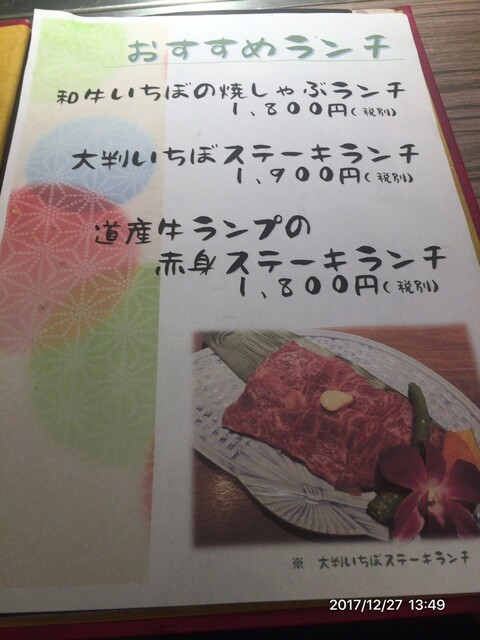 おすすめランチ
和牛いちぼの焼しゃぶランチ
1,800円(税別)
大判いちぼステーキランチ
1,900円(税別)
道産牛ランプの
赤身ステーキランチ
1,800円(税別)
※ 大判いちぼステーキランチ
2017/12/27 13:49